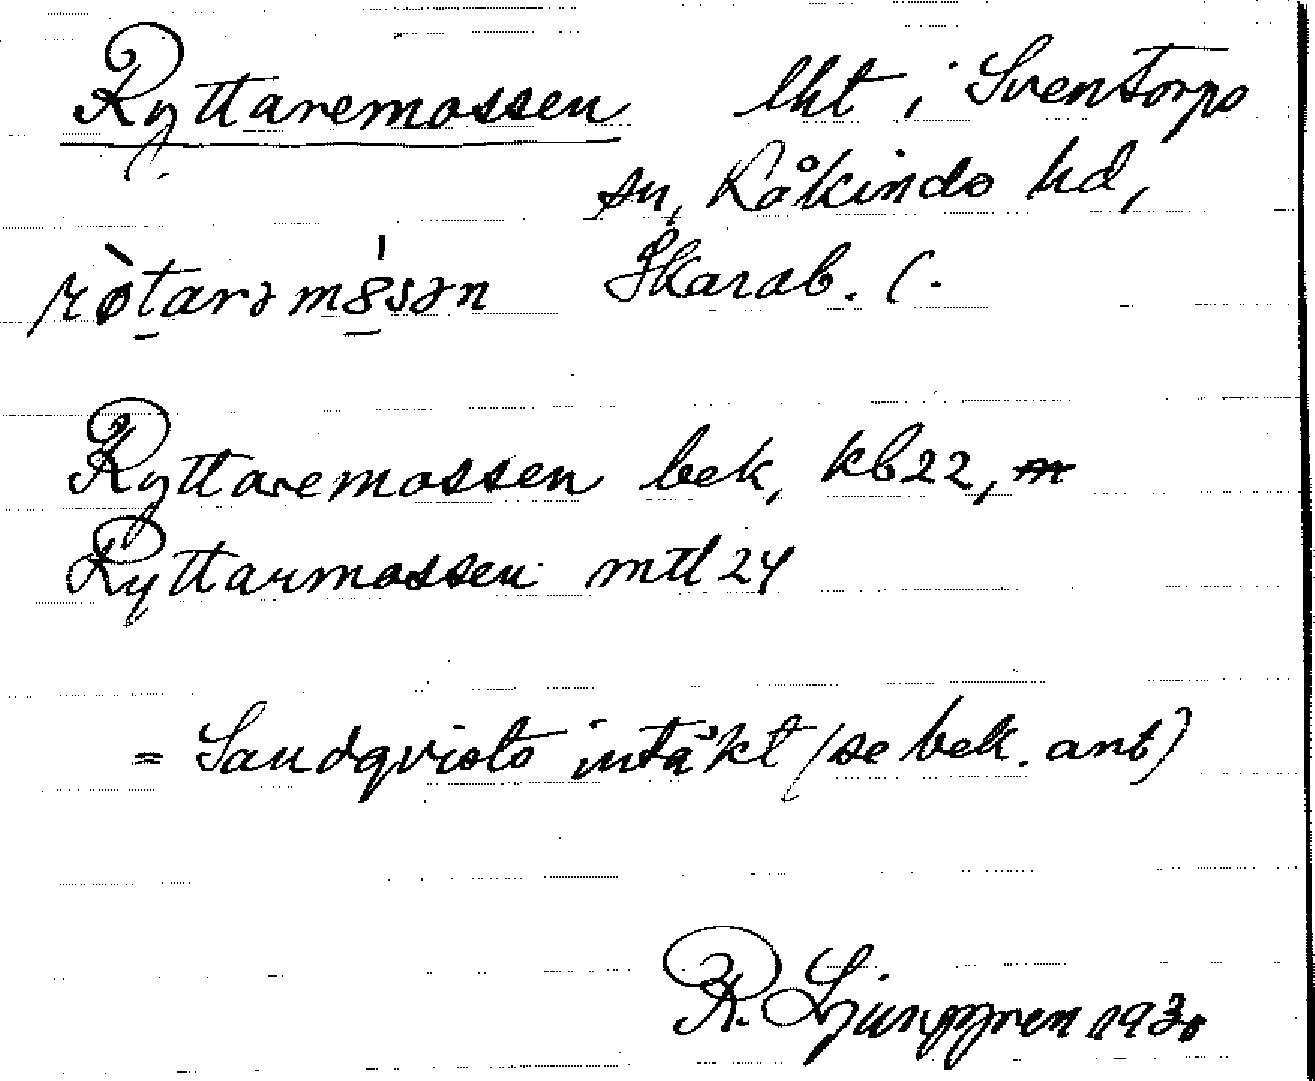 Ryttaremossen lht i Sventorps
sn, Kåkinds hd,
Skarab. l.
Ryttaremossen bek, kb22,
Ryttarmossen mtl 24
= Sandqvists intäkt (se bek. anb)
R. Ljunggren 1930